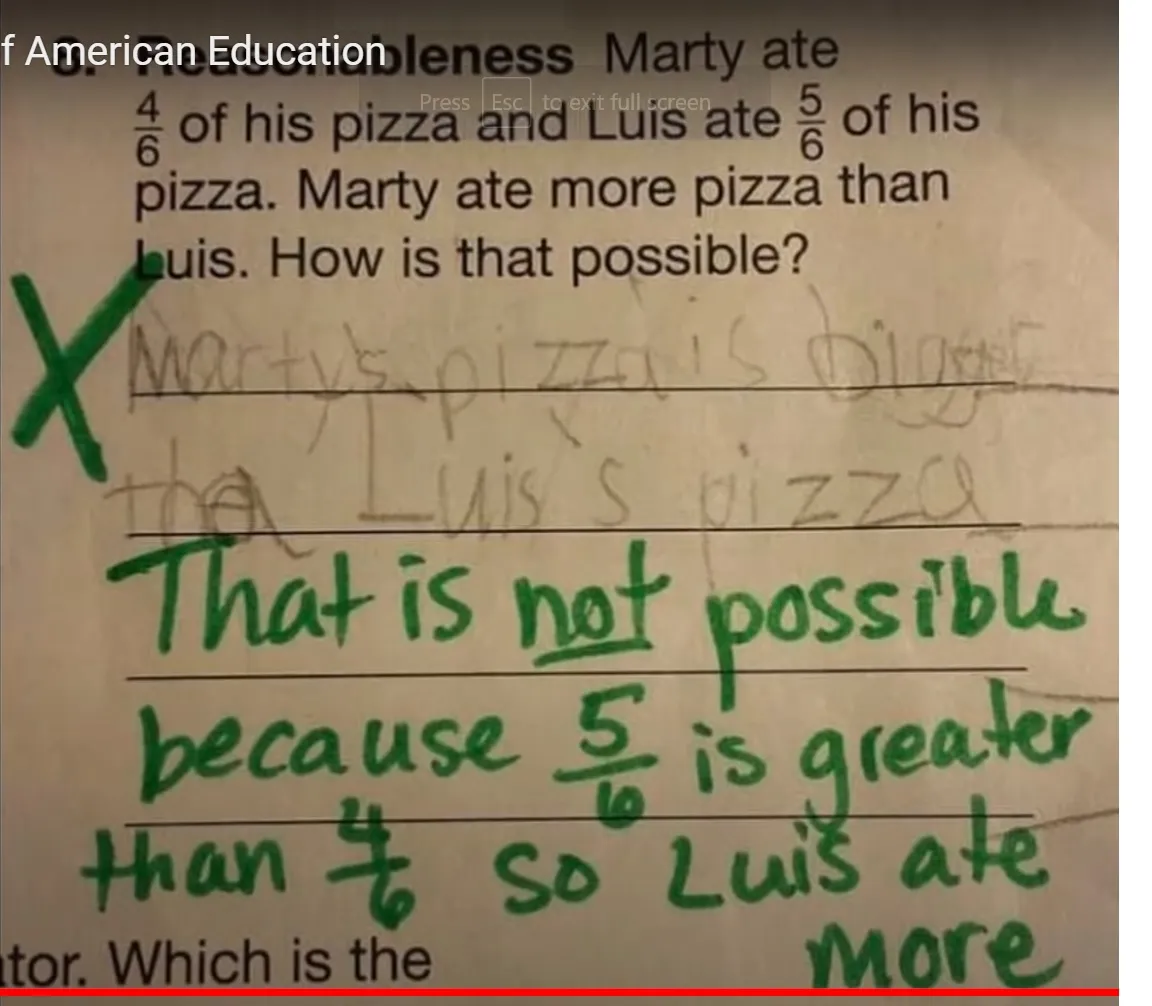 f American Education
8. Reasonableness Marty ate
Press Esc to exit full screen
4/6 of his pizza and Luis ate 5/6 of his
pizza. Marty ate more pizza than
Luis. How is that possible?
X
Marty's pizza is bigger
tha Luis's pizza
That is not possible
because 5/6 is greater
than 4/6 so Luis ate
more
tor. Which is the